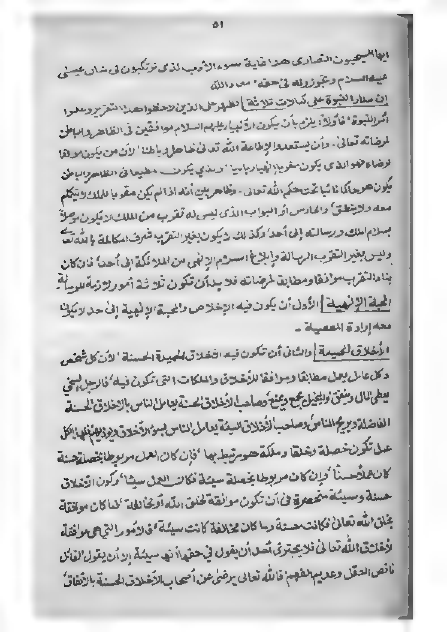 ٥١
ايها المسيحيون النصارى هذا غاية سوء الأدب الذى ترتكبون فى شان عيسى
عليه السلام وتجوزونه فى حقه معاذ الله
إن مدار النبوة على كمالات ثلاثة
أثر النبوة فأولا يلزم أن يكون الأنبياء عليهم السلام موافقين فى الظاهر والباطن
لمرضاته تعالى وان يستعدوا لإطاعة الله تعالى ظاهرا وباطنا لأن من يكون موافقا
يكون هو حاكما نائبا تحت حكم الله تعالى وظاهر بين أنه إذا لم يكن مقربا للملك ويتكلم
معه ولا ينطق والحارس أو البواب الذى ليس له تقرب من الملك لا يكون موصلا
بسلام الملك ورسالته إلى أحد وكذلك لا يكون بغير التقرب شرف المكالمة بالله تعالى
وليس بغير التقرب الرسالة وإبلاغ السلام الإلهى من الملائكة إلى أحد فإن كان
بناء التقرب موافقا ومطابقا لمرضاته فلابد أن تكون ثلاثة أمور لازمة للرسالة
المحبة الإلهية الأول أن يكون فيه الإخلاص والمحبة الإلهية إلى حد لا يكون
معه إرادة المعصية -
الأخلاق الحميدة والثانى أن تكون فيه الأخلاق الحميدة الحسنة لأن كل شخص
وكل عامل يعمل مطابقا وموافقا للأخلاق والملكات التى تكون فيه فالرجل السخى
يعطى المال وينفق والبخيل يجمع ويمنع وصاحب الأخلاق الحسنة يعامل الناس بالأخلاق الحسنة
الفاضلة ويريح الناس وصاحب الأخلاق السيئة يعامل الناس بسوء الأخلاق
عمل تكون خصلة وخلقا وملكة هو مرتبط بها فإن كان العمل مربوطا بخصلة حسنة
كان عملا حسنا وإن كان مربوطا بخصلة سيئة فكانت العمل سيئا وكون الأخلاق
حسنة وسيئة منحصرة فى أن تكون موافقة لخلق الله أو مخالفة فما كان موافقة
بخلق الله تعالى فكانت حسنة وما كان مخالفة كانت سيئة فالأمور التى هى موافقة
لأخلاق الله تعالى فلا يجترئ أحد أن يقول فى حقها أنها سيئة إلا أن يقول القائل
ناقص العقل وعديم الفهم فالله تعالى يرضى عن أصحاب الأخلاق الحسنة بالاتفاق